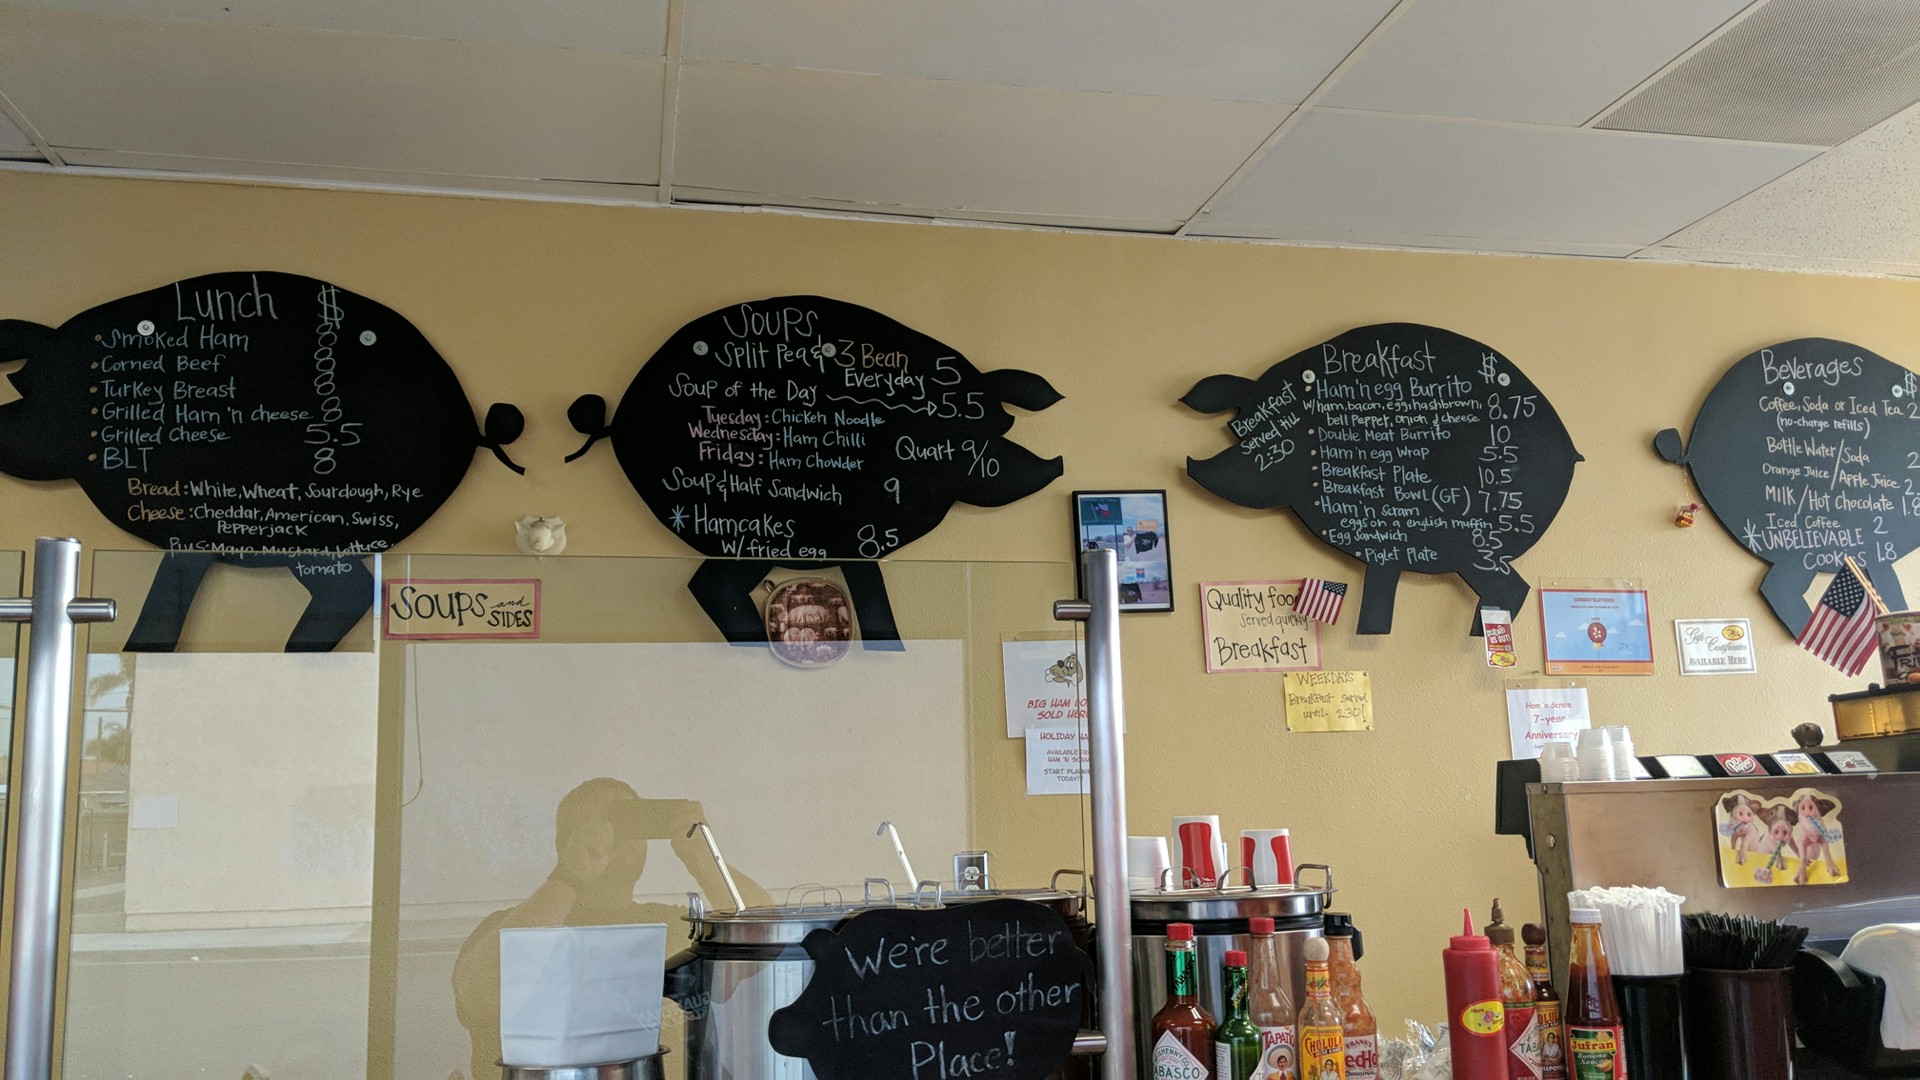 Lunch $
Smoked Ham 8
Corned Beef 8
Turkey Breast 8
Grilled Ham 'n cheese 8
Grilled Cheese 5.5
BLT 8
Bread: White, Wheat, Sourdough, Rye
Cheese: Cheddar, American, Swiss,
Pepperjack
Plus: Mayo, Mustard, Lettuce,
tomato
Soups
Split Pea & 3 Bean 5
Everyday
Soup of the Day 5.5
Tuesday: Chicken Noodle
Wednesday: Ham Chilli
Friday: Ham Chowder
Quart 9/10
Soup & Half Sandwich 9
Hamcakes
w/ fried egg 8.5
Breakfast $
Breakfast
Served till
2:30
Ham 'n egg Burrito
w/ham, bacon, egg, hashbrown, 8.75
bell pepper, onion & cheese
Double Meat Burrito 10
Ham 'n egg Wrap 5.5
Breakfast Plate 10.5
Breakfast Bowl (GF) 7.75
Ham 'n Scram
eggs on a english muffin 5.5
Egg Sandwich 8.5
Piglet Plate 3.5
Beverages $
Coffee, Soda or Iced Tea 2
(no-charge refills)
Bottle Water/Soda 2
Orange Juice/Apple Juice 2.
Milk/Hot Chocolate 1.8
Iced Coffee 2
UNBELIEVABLE
Cookies 1.8
Soups and
SIDES
Quality foo
served quickly
Breakfast
WEEKDAYS
Breakfast served
until 2:30!
BIG HAM
SOLD HERE
HOLIDAY
AVAILABLE
HAM 'N
START
TODAY!
Gift
Certificates
AVAILABLE HERE
Ham 'n Scram
7-year
Anniversary
CONGRATULATIONS!
Dr Pepper
We're better
than the other
Place!
TABASCO
TAPATÍO
CHOLULA
FRANK'S
RedHot
Jufran
Banana
Sauce